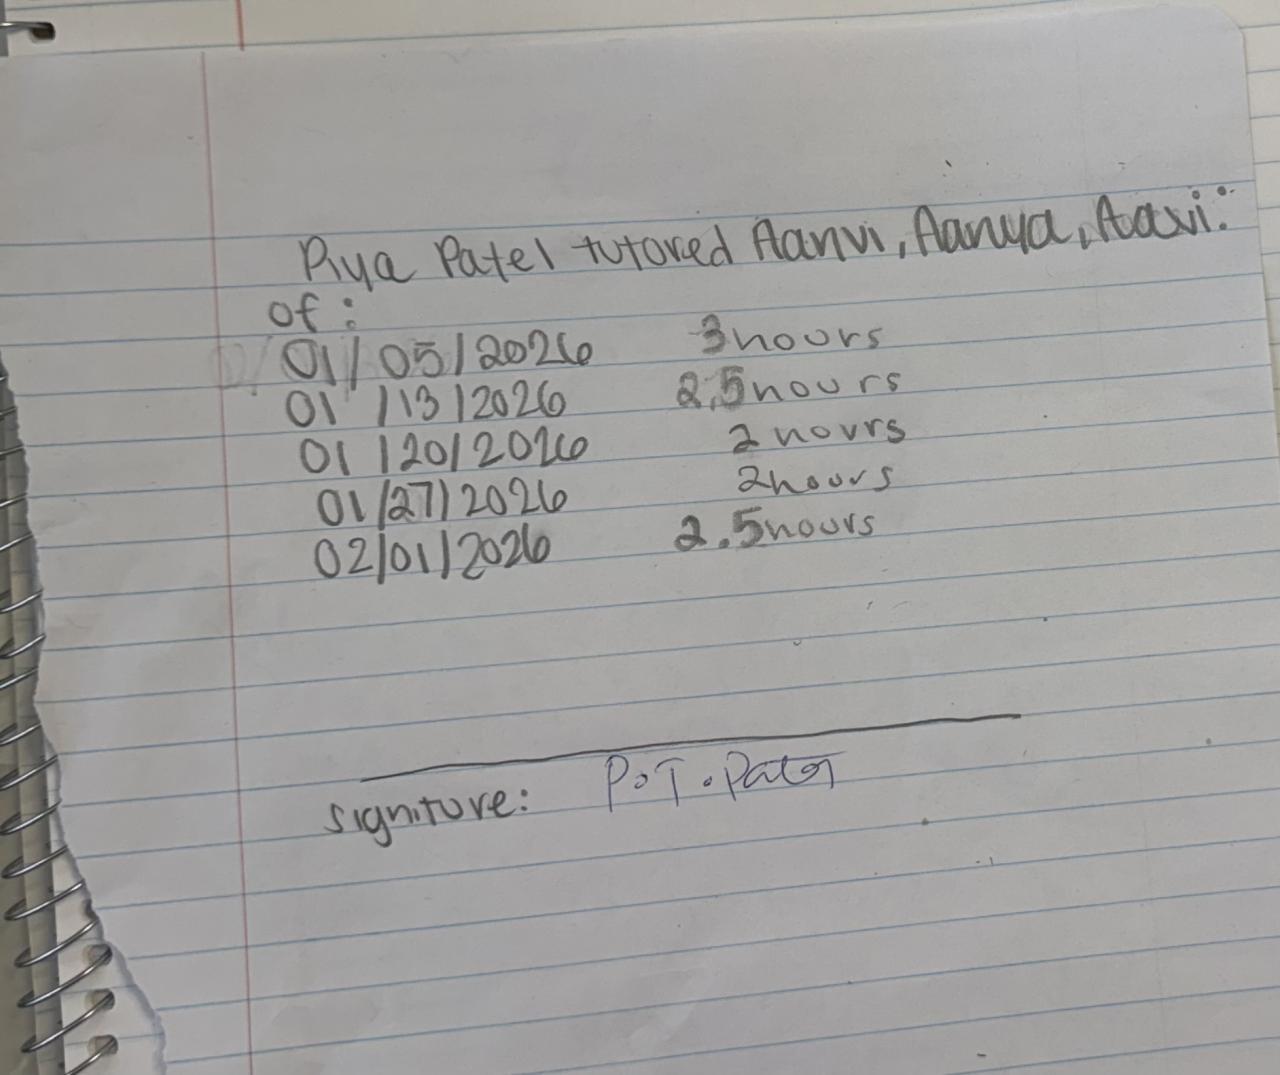 Piya Patel tutored Aanvi, Aanya, Aavi:
of:
01/05/2026 3hours
01/13/2026 2.5hours
01/20/2026 2hours
01/27/2026 2hours
02/01/2026 2.5hours
signiture: P.T.Patel